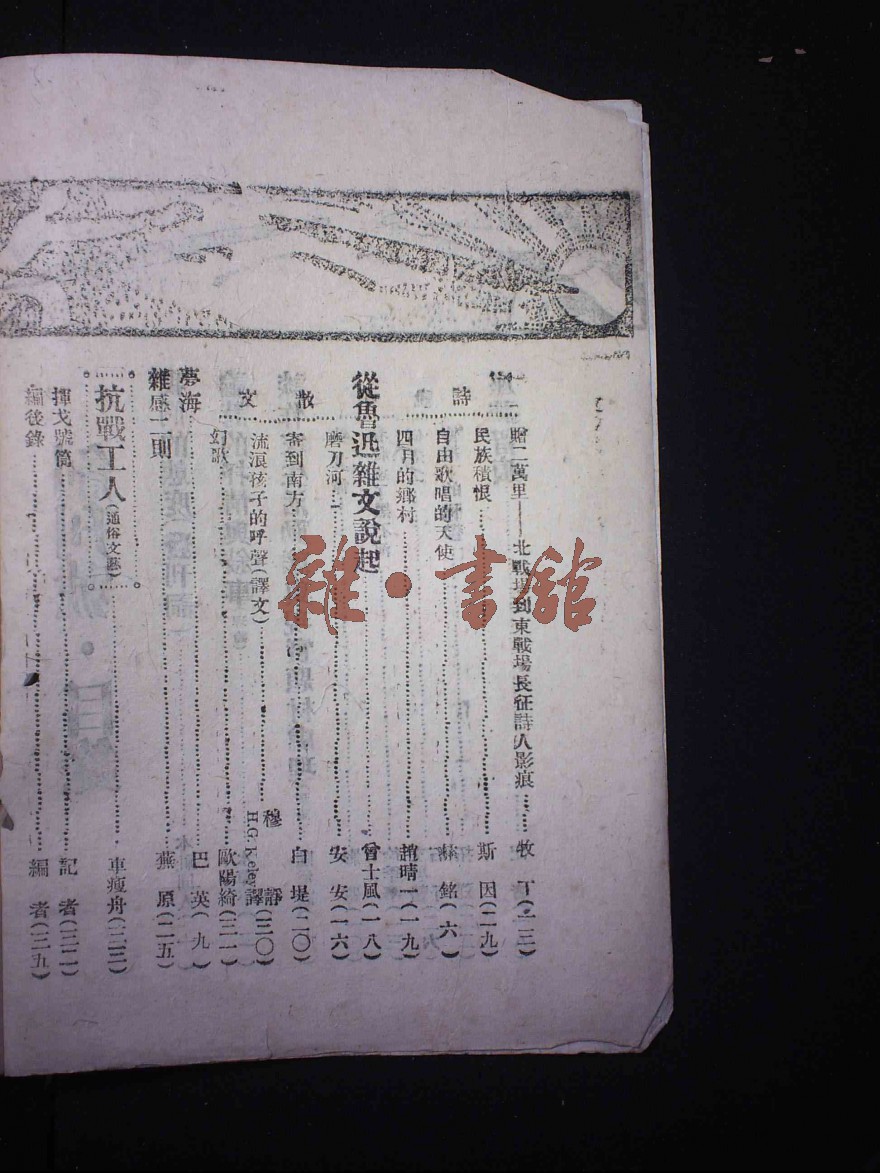 詩
贈二萬里——北戰場到東戰場長征詩人影痕……牧丁(一三)
民族積恨……斯因(二九)
自由歌唱的天使……銘(六)
四月的鄉村……趙晴一(一九)
從魯迅雜文說起……曾士風(一八)
散文
磨刀河……安安(一六)
寄到南方……白堤(二〇)
流浪孩子的呼聲(譯文)……H.G. Keler 穆靜譯(三〇)
幻歌……歐陽綺(三一)
夢海……巴英(九)
雜感二則……蕪原(二五)
抗戰工人(通俗文藝)……車瘦舟(三三)
揮戈號筒……記者(三二)
編後錄……編者(三五)
雜·書館